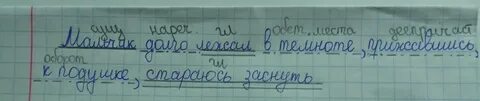 сущ нареч гл обст. места дееприча
Мальчик долго лежал в темноте, прижавшись,
оборот гл
к подушке, стараюсь заснуть